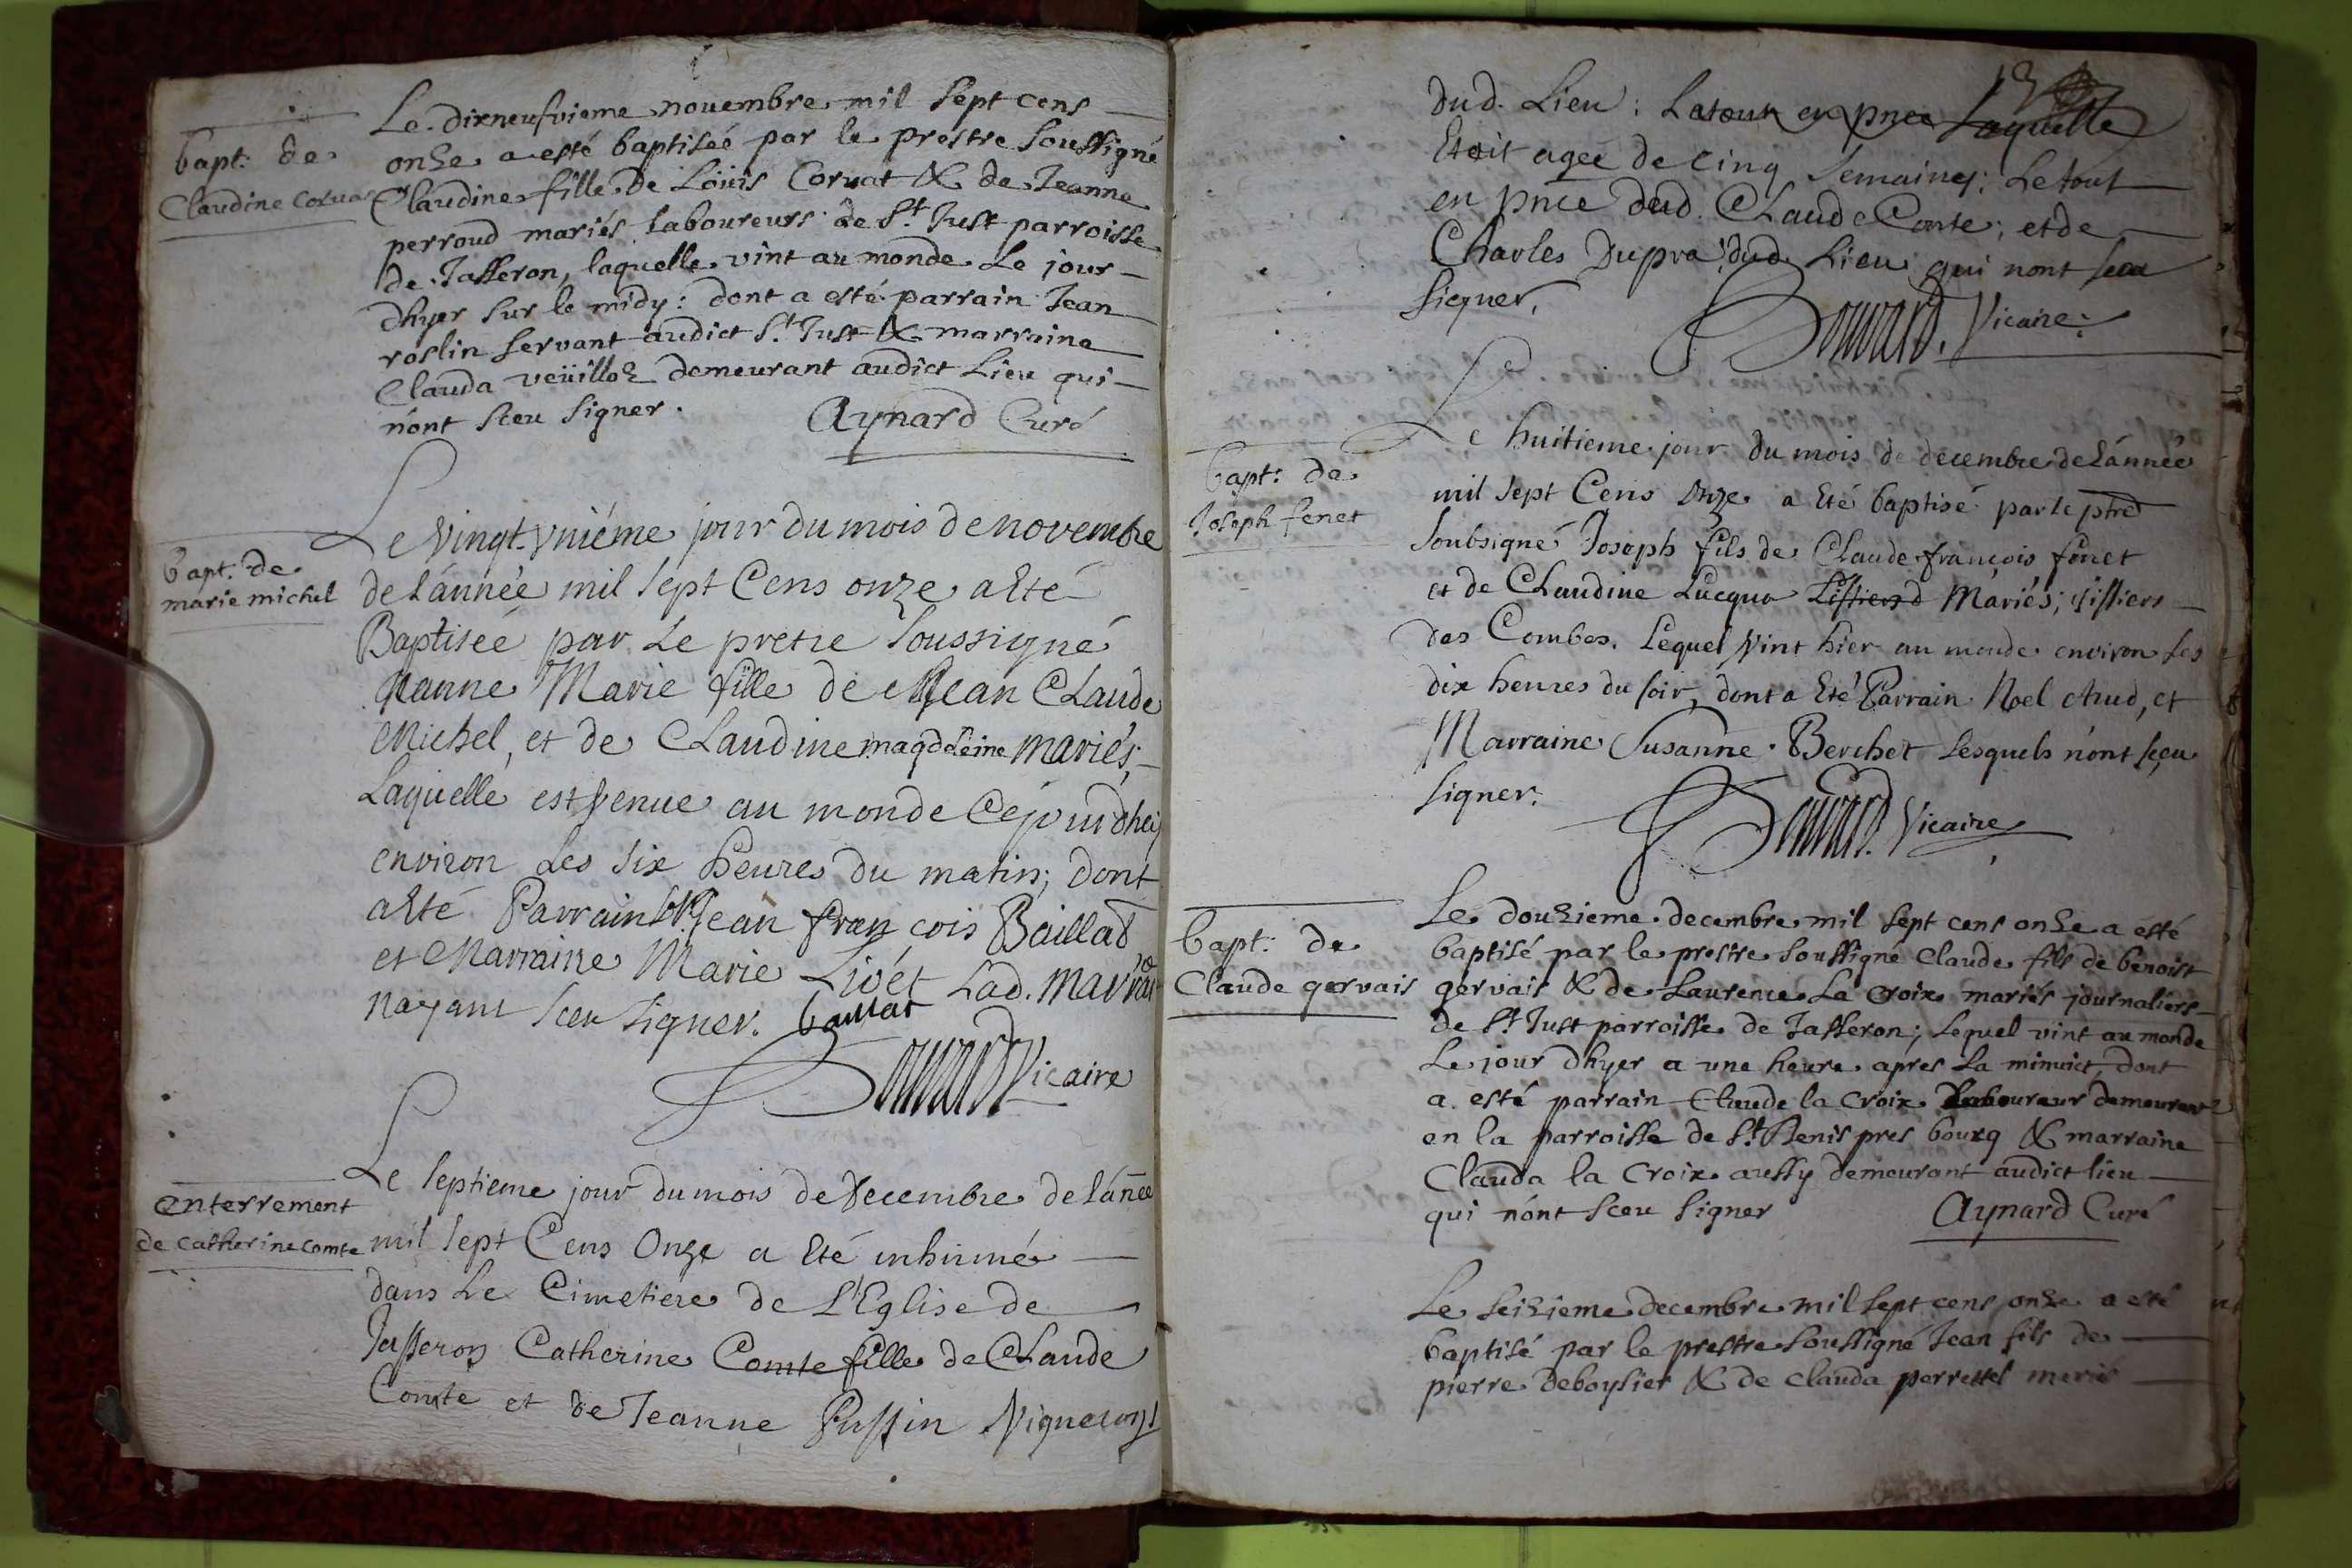 Le dixneufvieme novembre mil sept cens
bapt: de
Claudine Corvat
onze a esté baptiseé par le prestre soussigné
Claudine fille de Loüis Corvat & de Jeanne
perroud mariés laboureurs de St. Just parroisse
de Jasseron, laquelle vint au monde le jour
dhyer sur le midy: dont a esté parrain Jean
roslin servant audict St. Just & marraine
Clauda veüilloz demeurant audict lieu qui
n'ont sceu signer. Aynard Curé
bapt: de
marie michel
Le vingt-vniéme jour du mois de novembre
de l'année mil sept Cens onze a eté
Baptiseé par Le pretre soussigné
Jeanne Marie fille de Jean Claude
Michel, et de Claudine magdeleine mariés;
Laquelle est venue au monde Cejourdhuy
environ Les six heures du matin; dont
a eté Parrain Sr. Jean François Baillad
et Marraine Marie Livet Lad. marrai
nayant sceu signer. baillat
Bouvard Vicaire
enterrement
de catherine comte
Le septieme jour du mois de Decembre de l'année
mil sept Cens Onze a eté inhumé
dans Le Cimetiere de L'Eglise de
Jasseron Catherine Comte fille de Claude
Comte et de Jeanne Pussin Vignerons
13
dud. Lieu: Letout en pnce Laquelle
Etoit ageé de cinq semaines; Le tout
en pnce dud. Claude Comte; et de
Charles Dupra dud. Lieu qui nont sceu
signer. Bouvard. Vicaire.
bapt: de
Joseph fenet
Le huitieme jour du mois de decembre de l'année
mil sept Cens Onze a eté baptisé par le ptre
soubsigné Joseph fils de Claude françois fenet
et de Claudine Lucque Mariés;
des Combes. Lequel vint hier au monde environ les
dix heures du soir, dont a eté Parrain Noel chud, et
Marraine Susanne Berchet lesquels n'ont sceu
signer. Bouvard Vicaire
bapt: de
Claude gervais
Le douzieme decembre mil sept cens onze a esté
baptisé par le prestre soussigné Claude fils de benoist
gervais & de Laurence La croix mariés journaliers
de St. Just parroisse de Jasseron; Lequel vint au monde
Le jour dhyer a une heure apres la minuict, dont
a esté parrain Claude la croix Laboureur demeurant
en la parroisse de St. Denis pres bourg & marraine
Clauda la croix aussy demeurant audict lieu
qui n'ont sceu signer Aynard Curé
Le seizieme decembre mil sept cens onze a esté
baptisé par le prestre soussigné Jean fils de
pierre deboysier & de clauda perrettel mariés